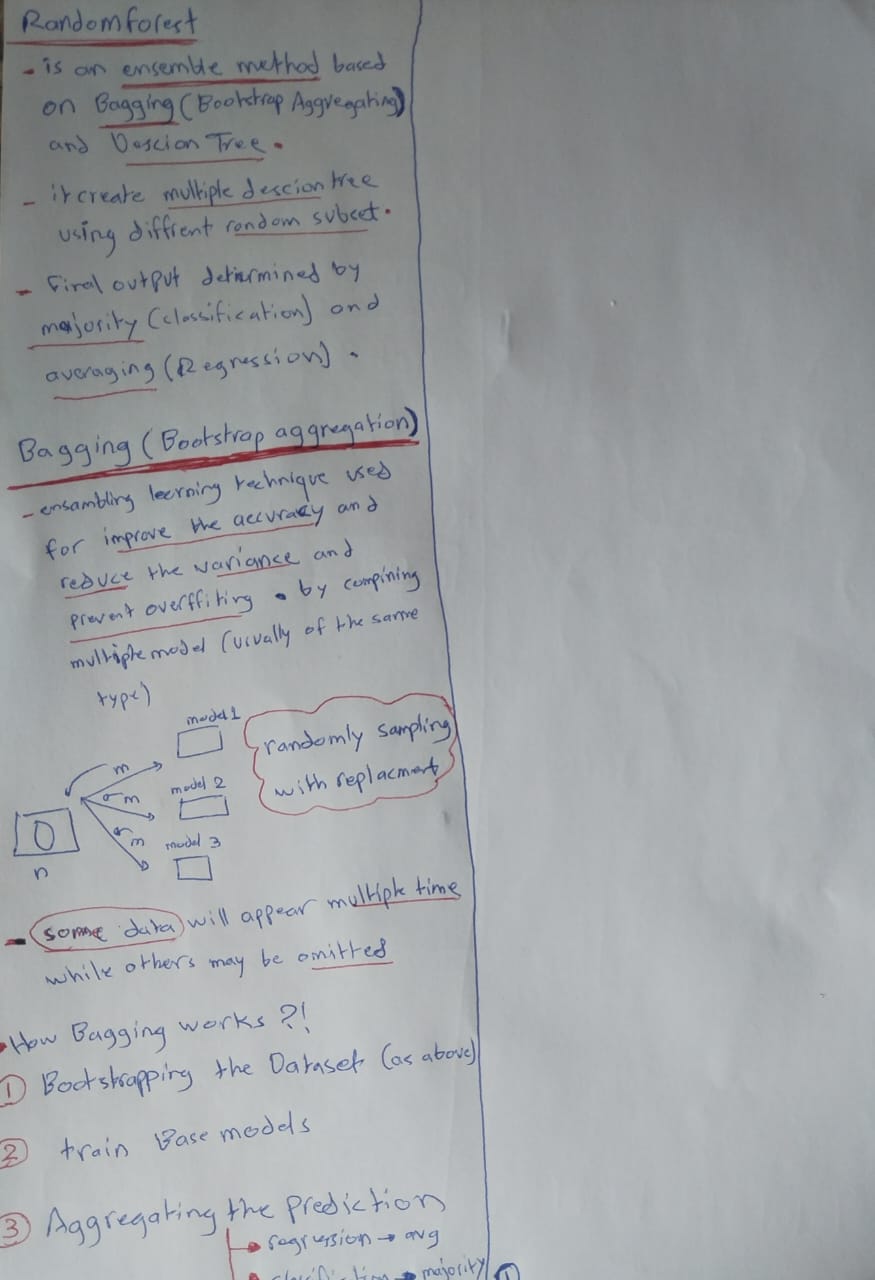 Randomforest
- is an ensemble method based
on Bagging (Bootstrap Aggregating)
and Descion Tree.
- it create multiple descion tree
using diffrent random subset.
- Final output determined by
majority (classification) and
averaging (Regression).
Bagging (Bootstrap aggregation)
- ensambling learning technique used
for improve the accuracy and
reduce the variance and
prevent overffiting . by compining
multiple model (usually of the same
type)
model 1
randomly sampling
with replacment
m
model 2
m
m
model 3
n
- some data will appear multiple time
while others may be omitted
• How Bagging works ?!
1 Bootstrapping the Dataset (as above)
2 train Base models
3 Aggregating the prediction
regression → avg
classification → majority 1